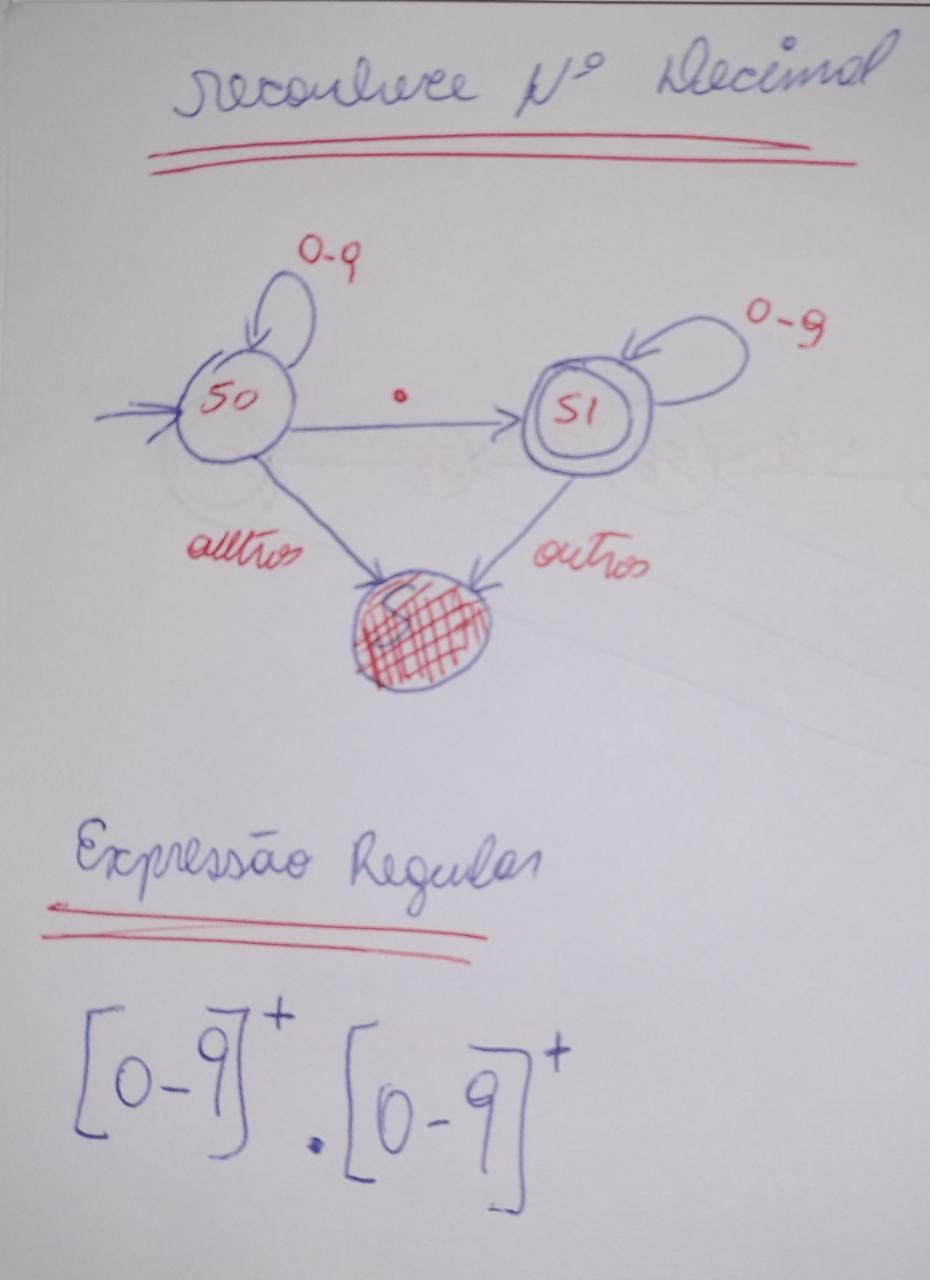 reconhece Nº Decimal
0-9
0-9
S0
.
S1
outros
outros
S
Expressão Regular
[0-9]+.[0-9]+